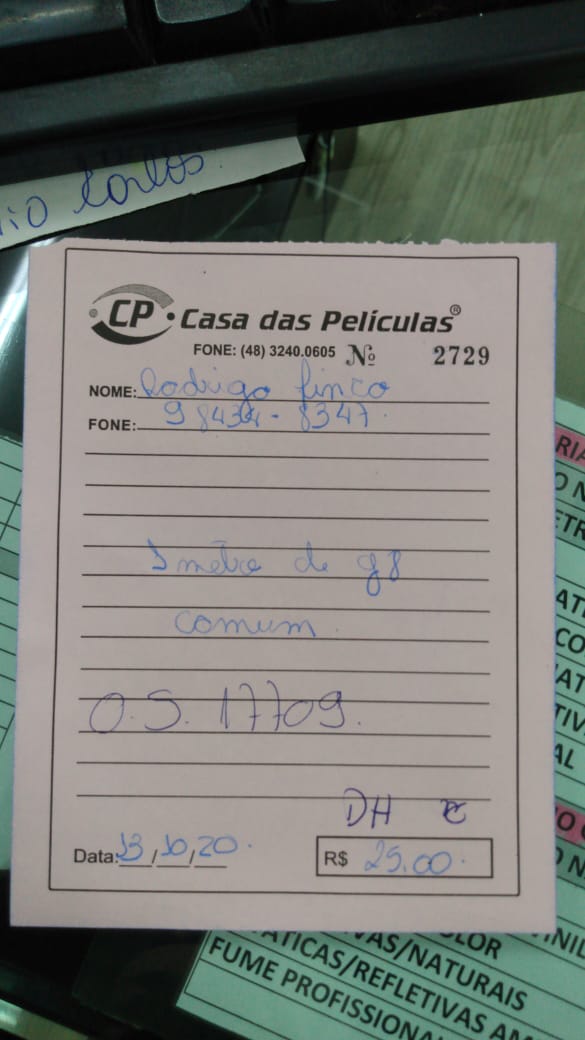 io Carlos
CP Casa das Películas®
FONE: (48) 3240.0605 Nº 2729
NOME: Rodrigo finco
FONE: 98434-8347
1 metro de g8
comum
O.S. 17709.
DH
Data: 13/10/20
R$ 25.00
RIA
O N
ETR
ATI
CO
NAT
TIV
AL
O C
O N
VINIL
OLOR
VAS/NATURAIS
ÁTICAS/REFLETIVAS AM
FUME PROFISSIONA